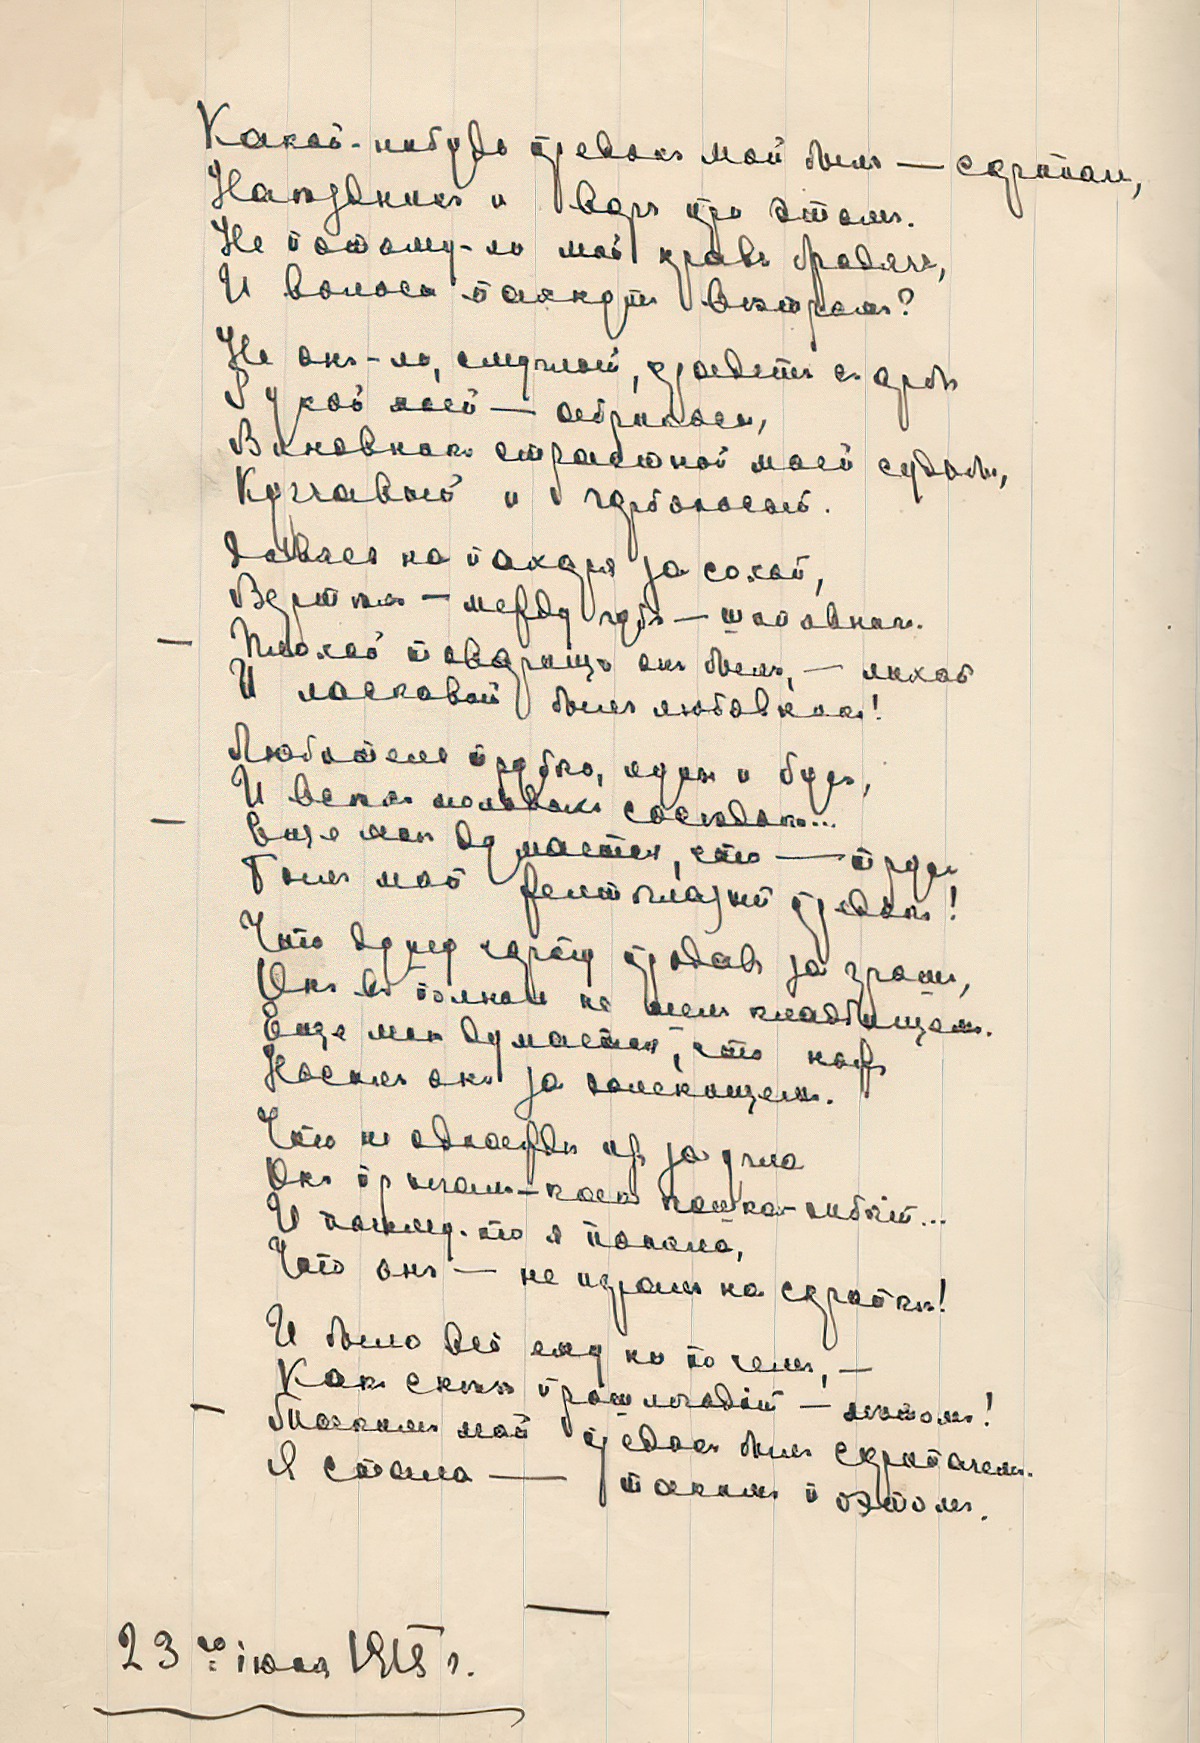 Какой-нибудь предокъ мой былъ — скрипачъ,
Наѣздникъ и воръ при этомъ.
Не потому-ли мой нравъ бродячъ,
И волосы пахнутъ вѣтромъ?
Не онъ-ли, смуглый, крадетъ съ арбы
Рукой моей — абрикосы,
Виновникъ страстной моей судьбы,
Курчавый и горбоносый.
Дивясь на пахаря за сохой,
Вертѣлъ — между губъ — шиповникъ.
— Плохой товарищъ онъ былъ, — лихой
И ласковый былъ любовникъ!
Любитель трубки, луны и бусъ,
И всѣхъ молодыхъ сосѣдокъ...
— Еще мнѣ думается, что — трусъ
Былъ мой желтоглазый предокъ!
Что душу чорту продавъ за грошъ,
Онъ въ полночь не шелъ кладбищемъ.
Еще мнѣ думается, что ножъ
Носилъ онъ за голенищемъ.
Что не однажды изъ за угла
Онъ прыгалъ — какъ кошка — гибкій...
И почему-то я поняла,
Что онъ — не игралъ на скрипкѣ!
И было всё ему ни по чемъ, —
Какъ снѣгъ прошлогодній — лѣтомъ!
— Такимъ мой предокъ былъ скрипачемъ.
Я стала — такимъ поэтомъ.
23го iюня 1915 г.